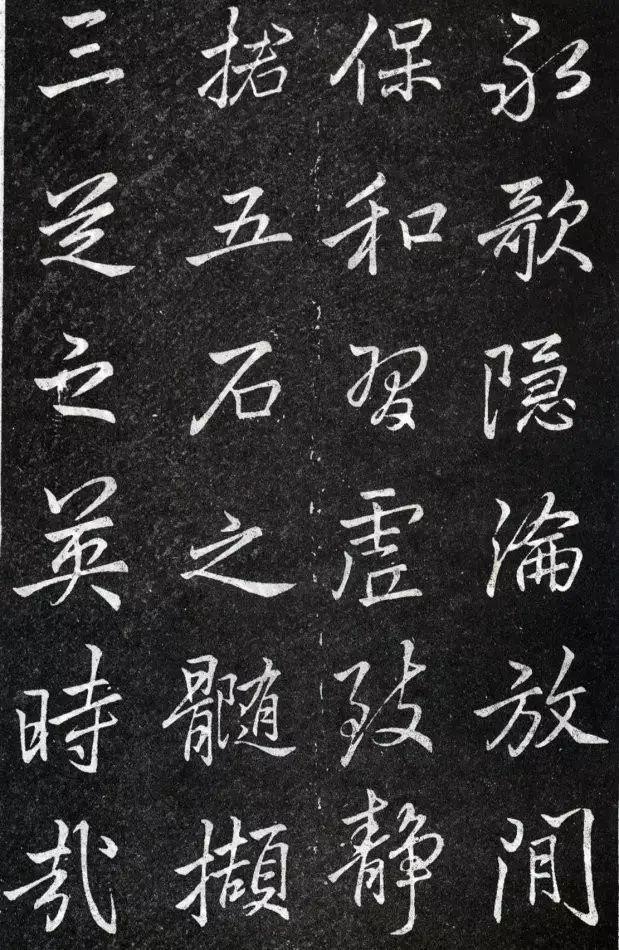 永歌隐淪放閒
保和習虛致靜
五石之髓擷
三芝之英時哉